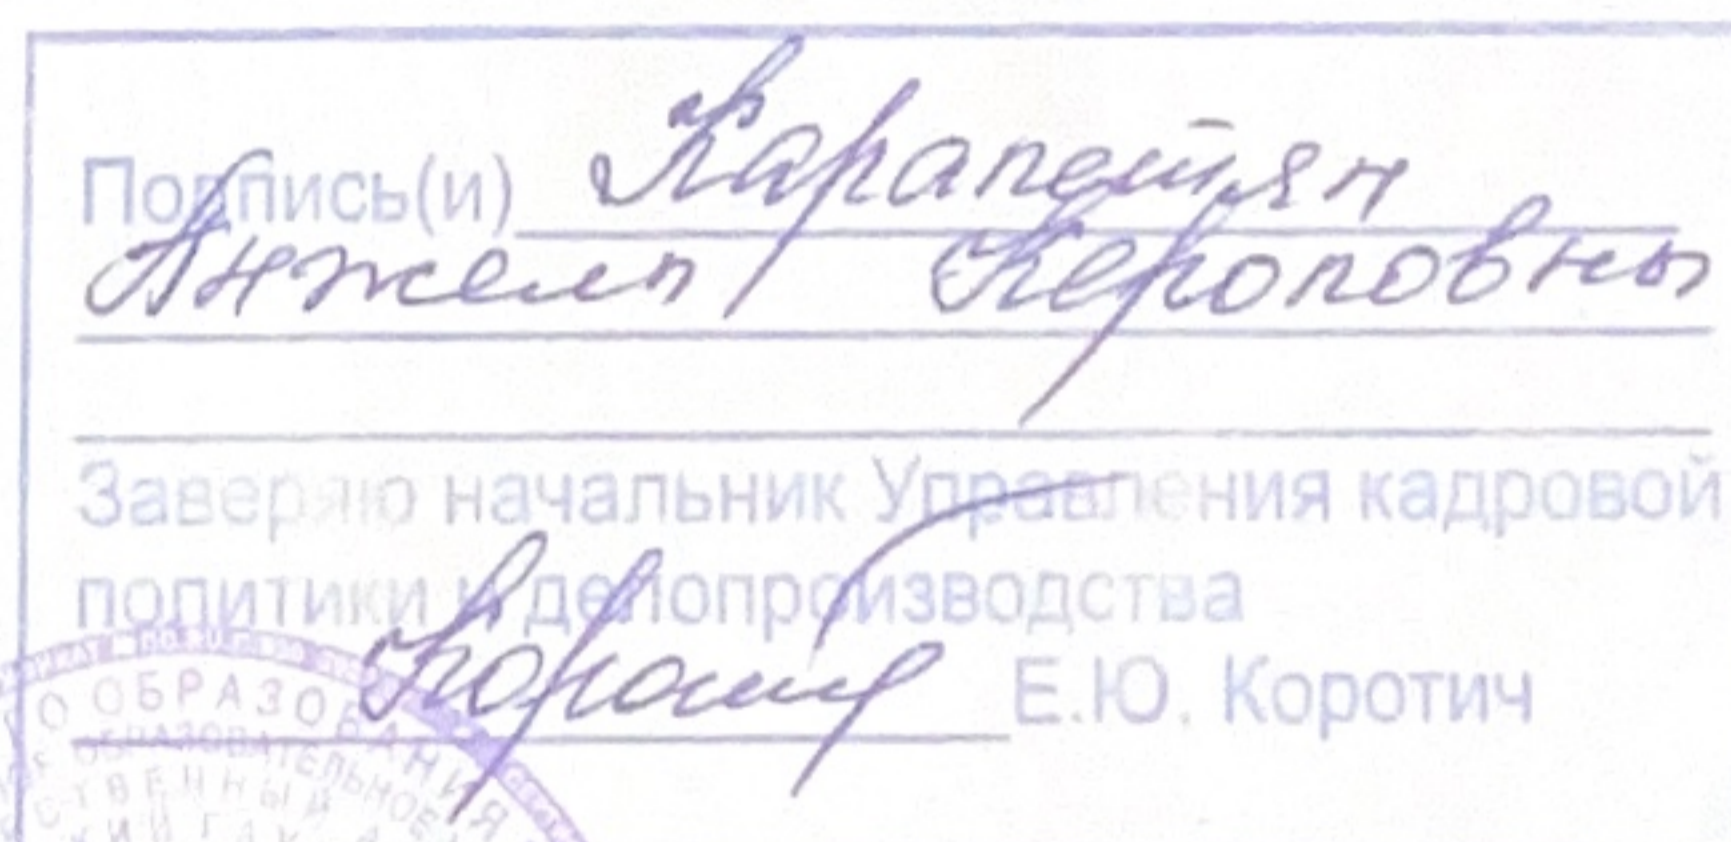 Подпись(и) Карапетян
Анжелы Кероповны
Заверяю начальник Управления кадровой
политики и делопроизводства
Е.Ю. Коротич
О ОБРАЗОВАНИЯ
ОБРАЗОВАТЕЛЬНОЕ
СТВЕННЫЙ